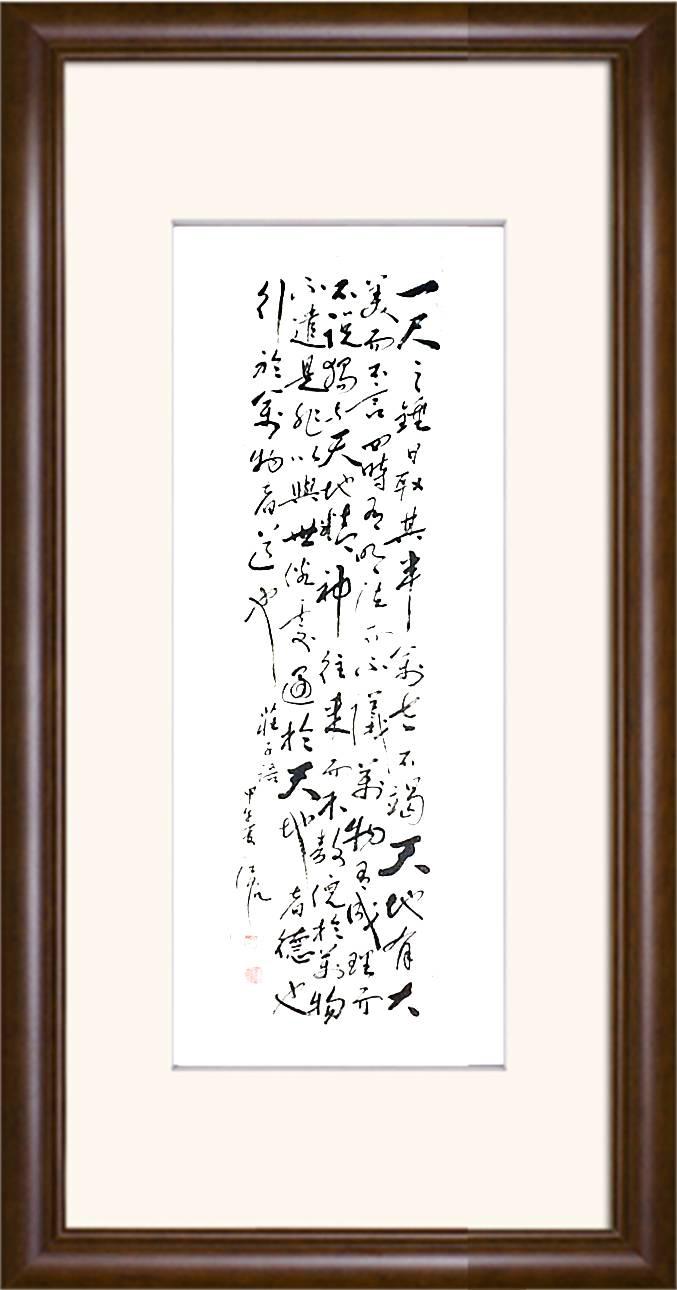 一尺之錘日取其半萬世不竭天地有大
美而不言四時有明法而不議萬物有成理而
不說獨與天地精神往來而不敖倪於萬物
不遣是非以與世俗處通於天地者德也
行於萬物者道也
莊子語
甲午夏